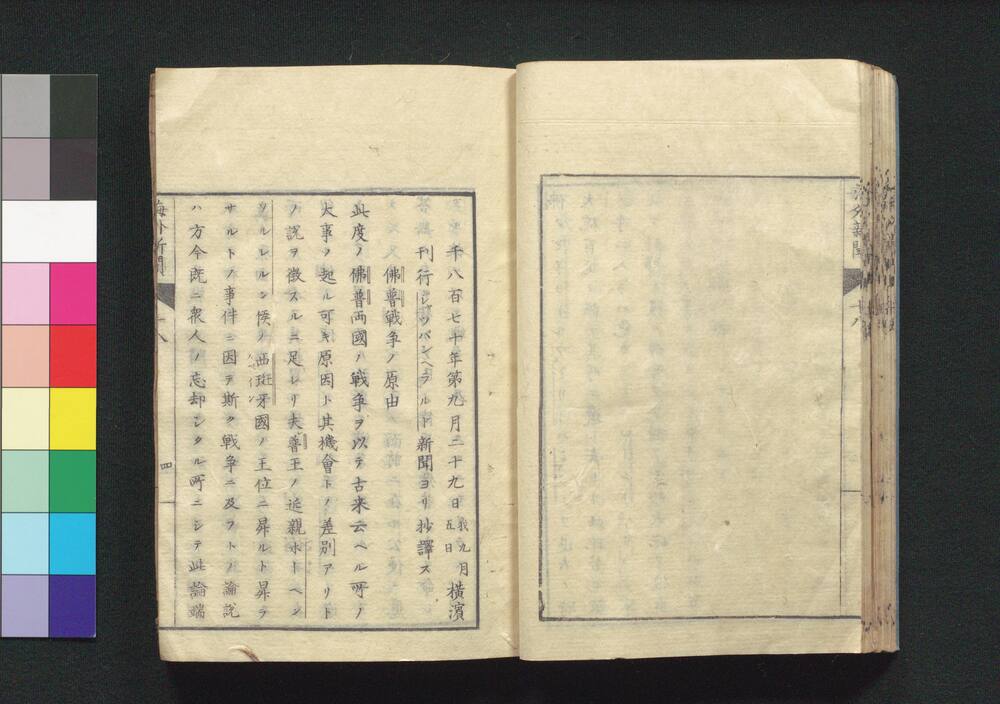 海外新聞 十八
千八百七十年第九月二十九日 我九月五日 横濱
刊行ジヤッパンヘラルト新聞ヨリ抄譯ス
佛普戦争ノ原由
此度ノ佛普両國ノ戦争ヲ以テ古来云ヘル所ノ
大事ヲ起ル可キ原因ト其機會トノ差別アリト
ノ説ヲ徴スルニ足レリ夫普王ノ近親ホーヘン
ソルレルン候ノ西班牙國ノ王位ニ昇ルト昇ラ
サルトノ事件ニ因テ斯ク戦争ニ及フトノ論説
ハ方今既ニ衆人ノ忘却シタル所ニシテ此論端
海外新聞 十八
四